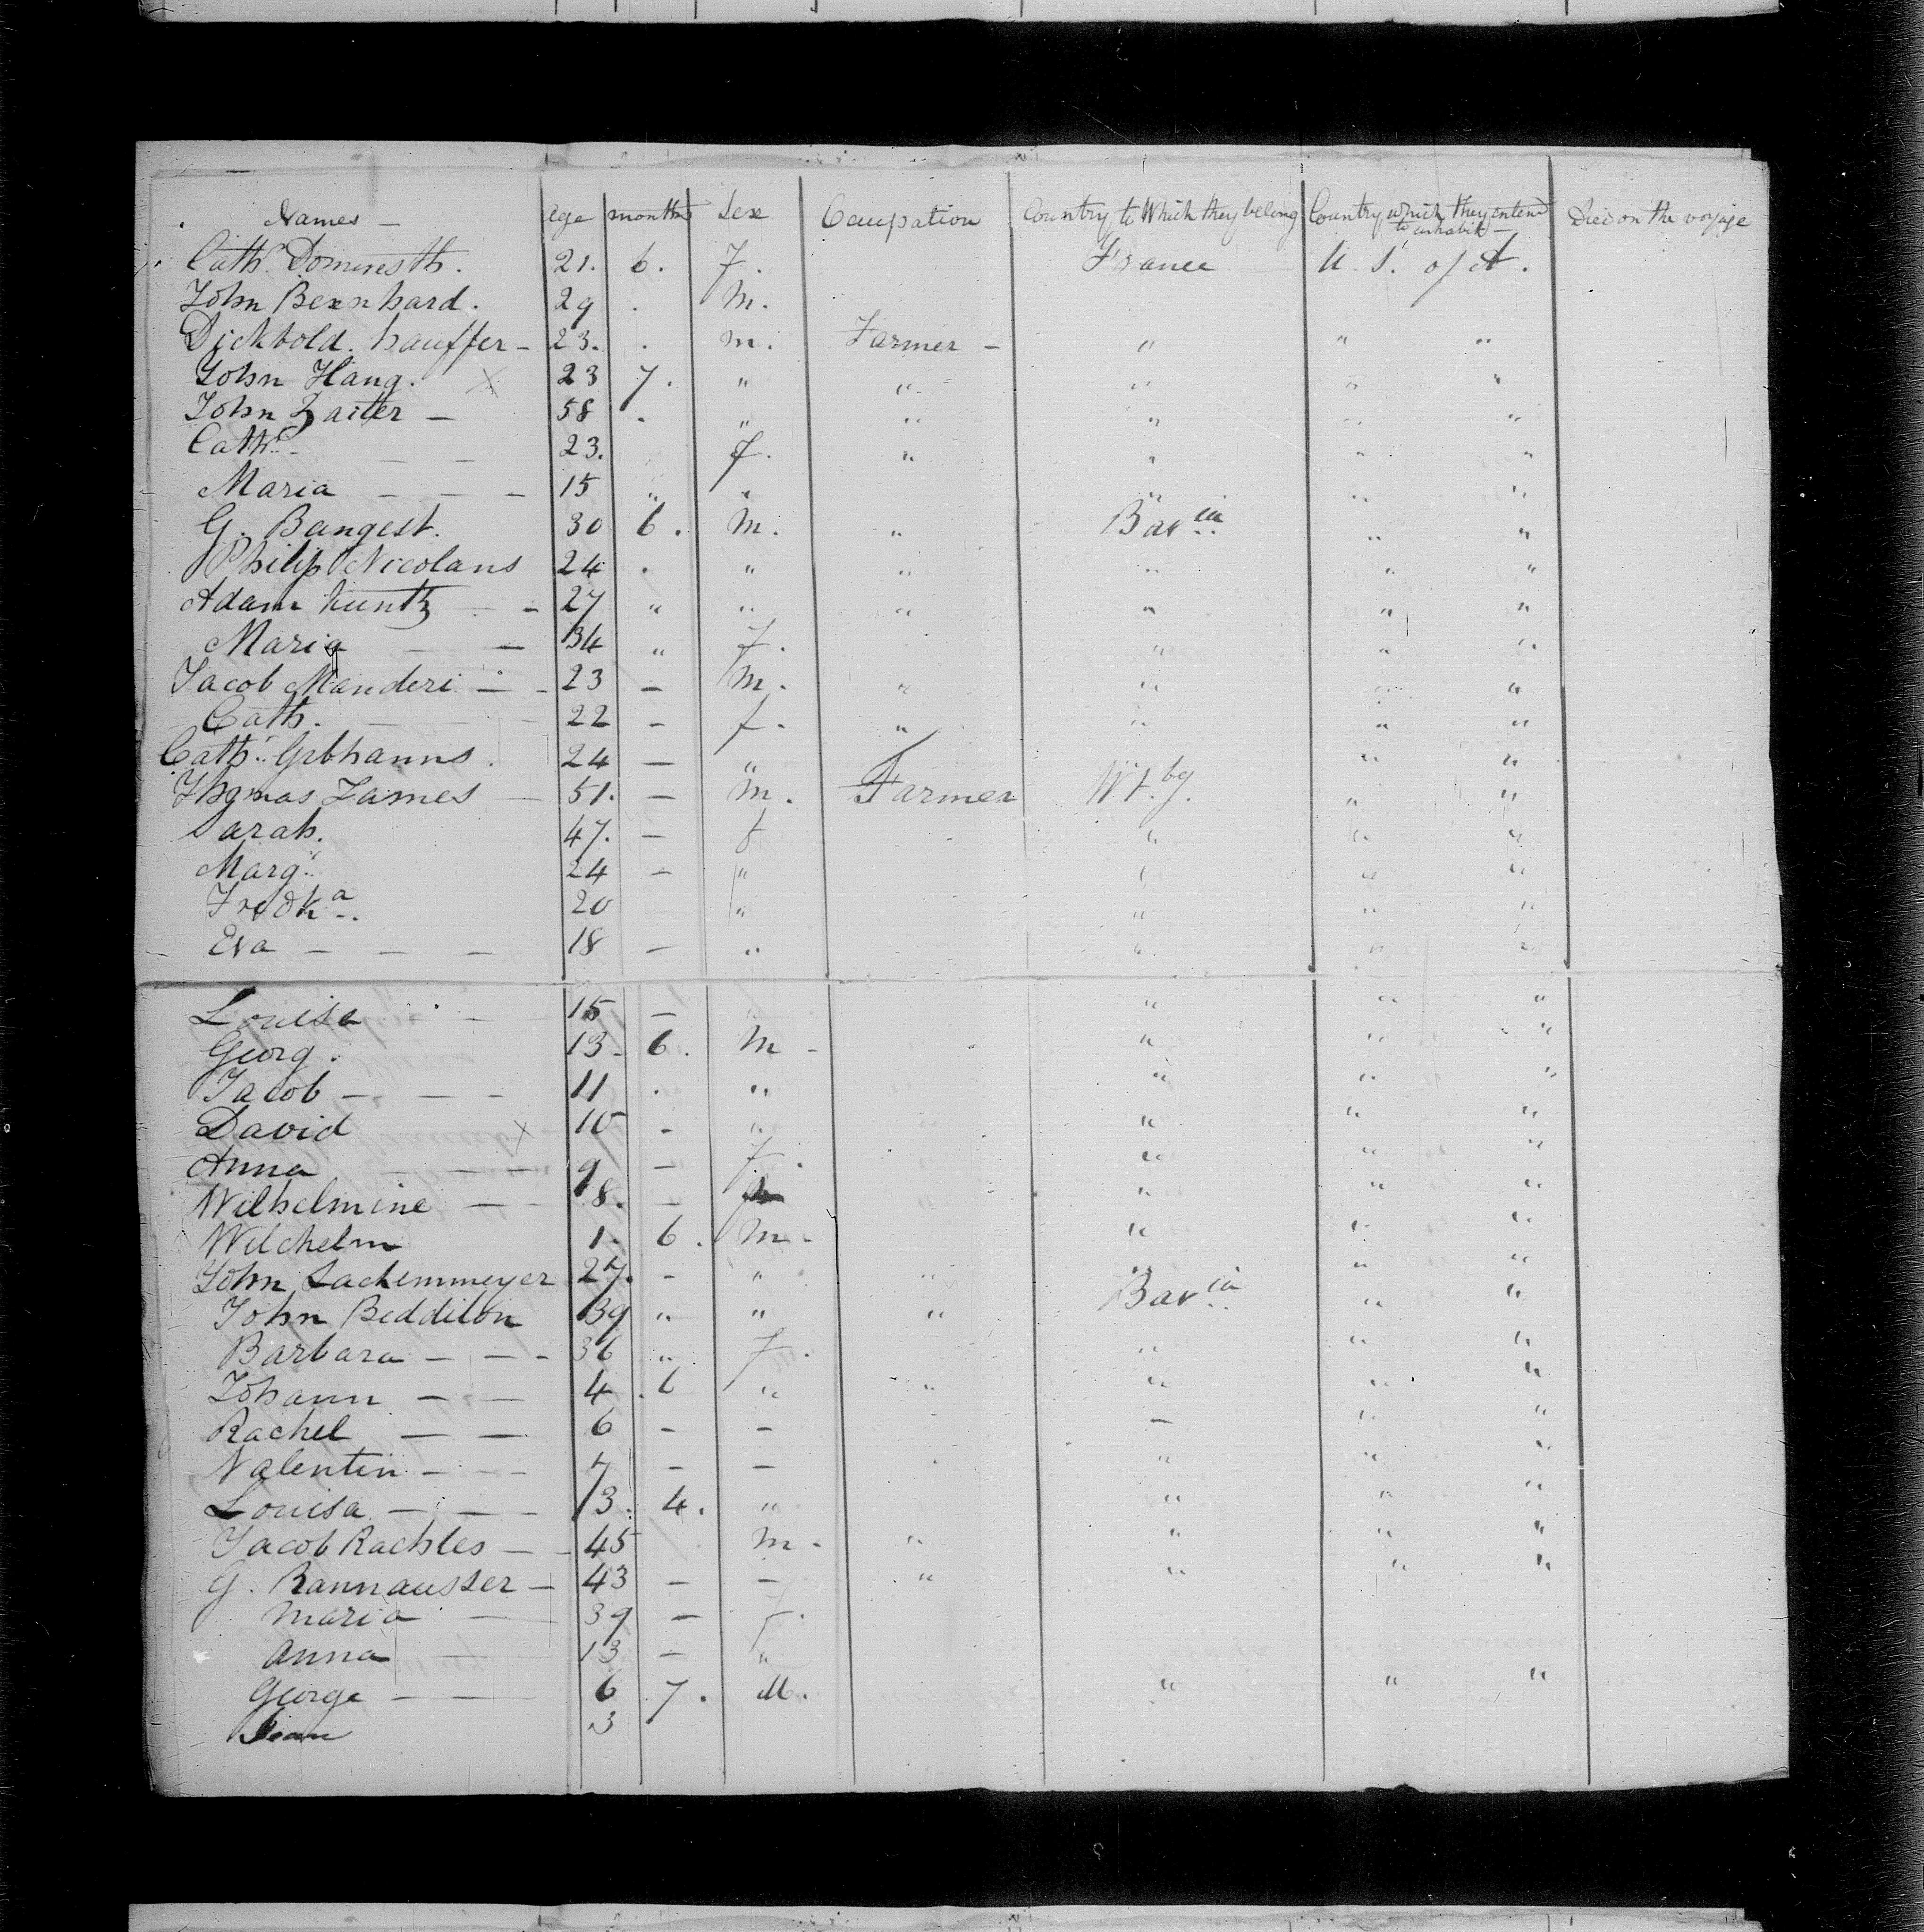 Names — Age months Sex Occupation Country to Which they belong Country which they intend to inhabit — Died on the voyage
Cath. Dominesth. 21. 6. F. France U. S. of A.
John Bernhard. 29 . M.
Dickbold. hauffer — 23. . m. Farmer — " " "
John Hang. X 23 7. " " " " "
John Zaiter — 58 . " " " " "
Cath. — — 23. F. " " " "
Maria — — — 15 " " " " "
G. Bangest. 30 6. M. " Bavia " "
Philip Nicolans 24 . " " " " "
Adam Kuntz — — 27 " " " " " "
Maria — — 34 " F. " " "
Jacob Manderi — — 23 — M. " " " "
Cath. — — — 22 — f. " " " "
Cath. Gebhanns. 24 — " " "
Thomas James — 51. — M. Farmer Wt.bg. " "
Sarah. 47. — f " " "
Marg. 24 — " " " "
Fredka. 20 " " " "
Eva — — — 18 — " " " "
Louisa — 15 — " " "
Georg. 13 — 6. M — " " "
Jacob — — — 11 . " " " "
David X 10 — " " " "
Anna — — — 9 — F. " " "
Wilhelmine — — 8. — " " "
Wilchelm 1. 6. M — " " "
John Lachemmeyer 27. — " " " " "
John Beddilon 39 " " " Bavia " "
Barbara — — — 36 " F. " " "
Johann — — 4 .6 " " " " "
Rachel — — 6 — — — " "
Valentin — — — 7 — — " " "
Louisa — — — 3. 4. " " " "
Jacob Rachles — — 45 M — " " " "
G. Rannausser — 43 — — " " " "
Maria — 39 — F.
Anna — 13 — "
George — — 6 7. M. " " "
3